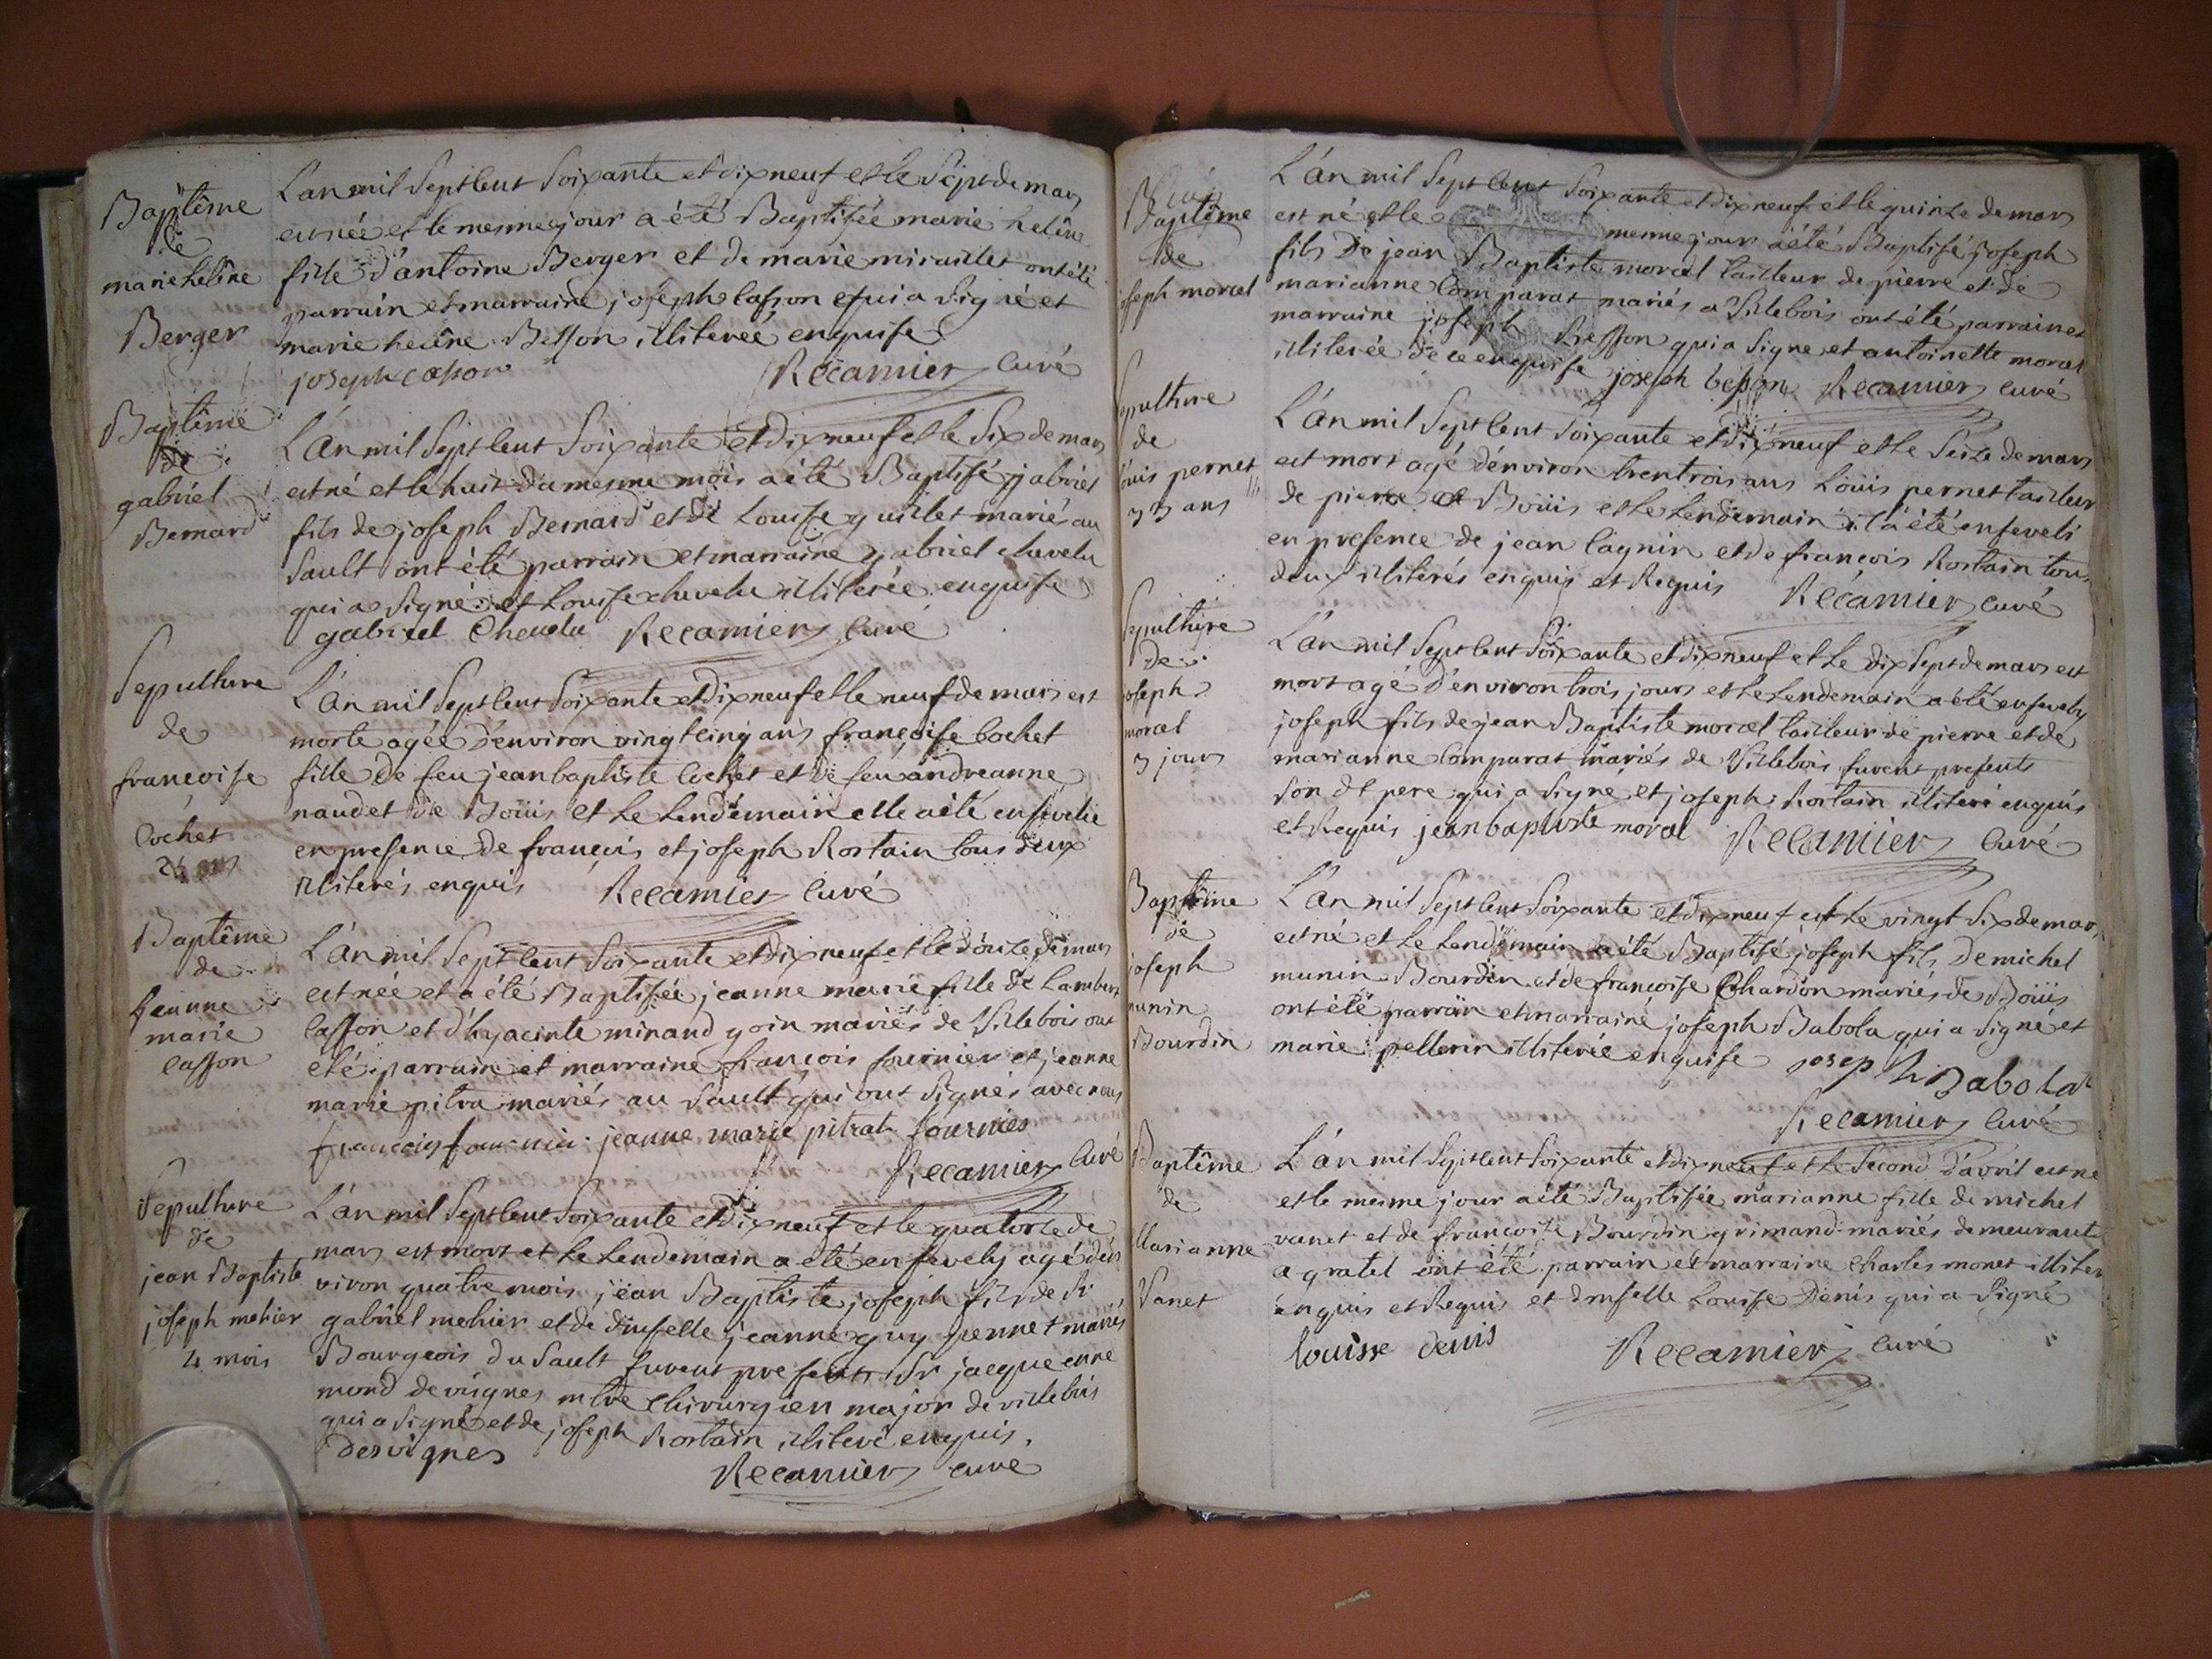 Baptême
de
marie heléne
Berger
L'an mil Sept Cent Soixante et dix neuf et le Sept de mars
est née et le mesme jour a été Baptisée marie heléne
fille d'antoine Berger et de marie miraillet ont été
parrain et marraine joseph Casson qui a Signé et
marie heléne Besson illiterée enquise
joseph casson Récamier Curé
Baptême
de
gabriel
Bernard
L'An mil Sept Cent Soixante et dix neuf et le Six de mars
est né et le huit du mesme mois a été Baptisé gabriel
fils de joseph Bernard et de Louise guillet mariés au
Sault ont été parrain et marraine gabriel chevelu
qui a Signé et Louise chevelu illiterée enquise
gabriel Chevelu Recamier Curé
Sepulture
de
francoise
Cochet
25 ans
L'An mil Sept Cent Soixante et dix neuf et le neuf de mars est
morte agée d'environ vingt cinq ans françoise Cochet
fille de feu jean baptiste Cochet et de feu andreanne
naudet de Boüis et le Lendemain elle a été ensevelie
en presence de françois et joseph Rostain tous deux
illiterés enquis Récamier Curé
Baptême
de
Jeanne
marie
Casson
L'An mil Sept Cent Soixante et dix neuf et le douze de mars
est née et a été Baptisée jeanne marie fille de Lambert
Casson et d'hyacinte minand goin mariés de Villebois ont
été parrain et marraine françois fournier et jeanne
marie pitra mariés au Sault qui ont Signés avec nous
francois fournier jeanne marie pitrat fournier
Recamier Curé
Sepulture
de
jean Baptiste
joseph mehier
4 mois
L'an mil Sept Cent Soixante et dix neuf et le quatorze de
mars est mort et le Lendemain a eté ensevely agé d'en
viron quatre mois jean Baptiste joseph fils de Sr
gabriel mehier et de dmselle jeanne guy pennet mariés
Bourgeois du Sault furent presents Sr jacque enne
mond devignes mtre Chirurgien major de villebois
qui a Signé et de joseph Rostain illiteré enquis.
Desvignes
Recamier Curé
Baptême
de
joseph morel
L'An mil Sept Cent Soixante et dix neuf et le quinze de mars
est né et le mesme jour a été Baptisé joseph
fils de jean Baptiste morel tailleur de pierre et de
marianne Comparat mariés a Villebois ont été parrain et
marraine joseph Besson qui a Signé et antoinette morel
illiterée de ce enquise joseph besson Recamier Curé
Sepulture
de
Louis pernet
33 ans
L'An mil Sept Cent Soixante et dix neuf et le Seize de mars
est mort agé d'environ trentrois ans Loüis pernet tailleur
de pierre de Boüis et le Lendemain il a été enseveli
en presence de jean Cagnin et de françois Rostain tous
deux illiterés enquis et Requis Récamier Curé
Sepulture
de
joseph
morel
3 jours
L'An mil Sept Cent Soixante et dix neuf et le dix Sept de mars est
mort agé d'environ trois jours et le Lendemain a eté ensevely
joseph fils de jean Baptiste morel tailleur de pierre et de
marianne Comparat mariés de Villebois furent presents
Son dt pere qui a Signé et joseph Rostain illiteré enquis
et Requis jean baptiste morel Recamier Curé
Baptême
de
joseph
munin
Bourdin
L'An mil Sept Cent Soixante et dix neuf et le vingt Six de mars
est né et le Lendemain a été Baptisé joseph fils de michel
munin Bourdin et de françoise Chardon mariés de Boüis
ont été parrain et marraine joseph Babola qui a Signé et
marie pellerin illiterée enquise joseph Babolat
Recamier Curé
Baptême
de
Marianne
Vanet
L'An mil Sept Cent Soixante et dix neuf et le Second d'avril est né
et le mesme jour a été Baptisée marianne fille de michel
vanet et de françoise Bourdin grimand mariés demeurant
a gratel ont été parrain et marraine Charles monet illiteré
enquis et Requis et dmselle Louise Denis qui a Signé
louisse denis Recamier Curé